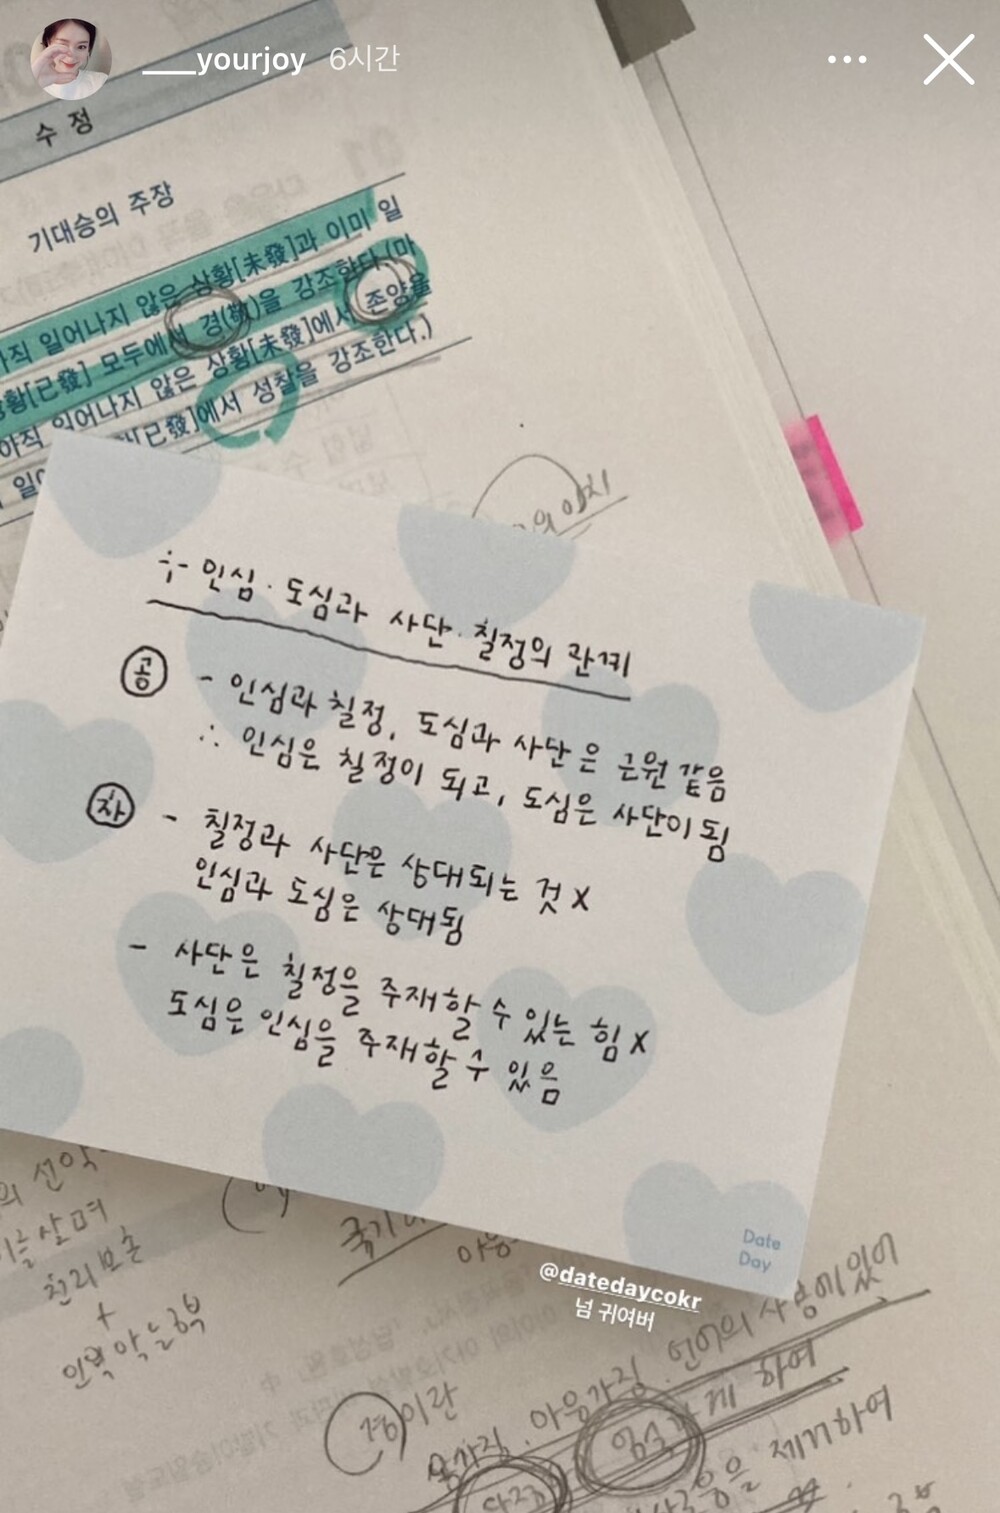 ___yourjoy 6시간
수 정
기대승의 주장
아직 일어나지 않은 상황[未發]과 이미 일
상황[已發] 모두에서 경(敬)을 강조한다.(마
아직 일어나지 않은 상황[未發]에서 존양을
[已發]에서 성찰을 강조한다.)
÷ 인심·도심과 사단·칠정의 관계
공 - 인심과 칠정, 도심과 사단은 근원 같음
∴ 인심은 칠정이 되고, 도심은 사단이 됨
차 - 칠정과 사단은 상대되는 것 X
인심과 도심은 상대됨
- 사단은 칠정을 주재할 수 있는 힘 X
도심은 인심을 주재할 수 있음
Date
Day
@datedaycokr
넘 귀여버
의 선악
살며
천리보존
+
경이란
몸가짐. 마음가짐. 언어의 사용에 있어
엄숙하게 하여
제거하여